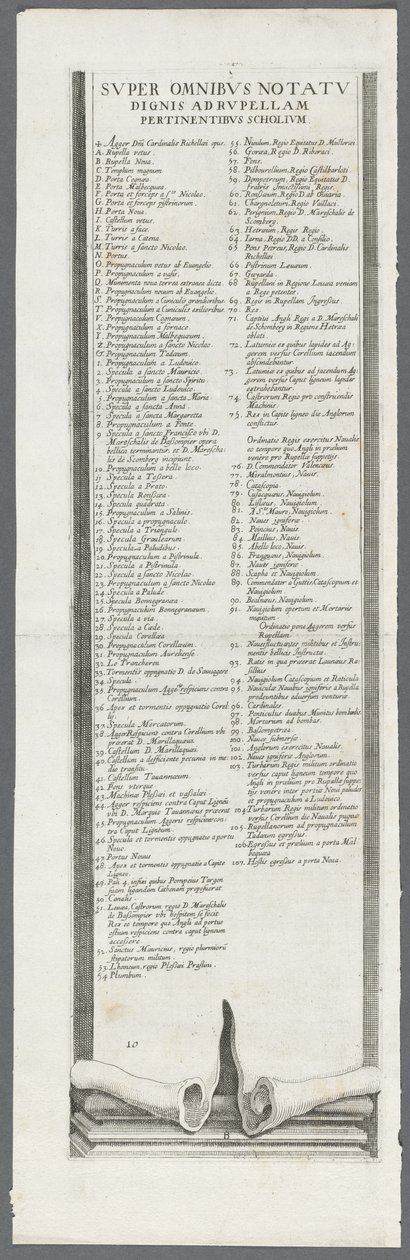 SVPER OMNIBVS NOTATV
DIGNIS AD RVPELLAM
PERTINENTIBVS SCHOLIVM
Agger Dni Cardinalis Richellæi opus.
A. Rupella vetus.
B. Rupella Noua.
C. Templum magnum
D. Porta Cognea.
E. Porta Malbecquea.
F. Porta et forceps a Sto Nicolao.
G. Porta et forceps pistrinorum.
H. Porta Noua.
I. Castellum vetus.
K. Turris a face.
L. Turris a Catena.
M. Turris a sancto Nicolao.
N. Portus.
O. Propugnaculum vetus ab Euangelio
P. Propugnaculum a vasis.
Q. Munimenta noua terrea extranea dicta
R. Propugnaculum nouum ab Euangelio.
S. Propugnaculum a Cuniculis grandioribus
T. Propugnaculum a Cuniculis exilioribus
V. Propugnaculum Cognæum.
X. Propugnaculum a fornace.
Y. Propugnaculum Malbequæum.
Z. Propugnaculum a sancto Nicolao.
Propugnaculum Tadæum.
1. Propugnaculum a Ludouico.
2. Specula a sancto Mauricio.
3. Propugnaculum a sancto Spiritu
4. Specula a sancto Ludouico.
5. Propugnaculum a sancta Maria
6. Specula a sancta Anna.
7. Specula a sancta Margaretta
8. Propugnaculum a Ponte.
9. Specula a sancto Francisco vbi D.
Mareschalis de Bassompier opera
bellica terminantur, et D. Marescha-
lis de Scomberg incipiunt.
10. Propugnaculum a bello loco.
11. Specula a Testera.
12. Specula a Prato.
13. Specula Rensæa.
14. Specula quadrata
15. Propugnaculum a Salinis.
16. Specula a propugnaculo.
17. Specula a Triangulo
18. Specula Groulearum.
19. Specula a Paludibus.
20. Propugnaculum a Pistrinula.
21. Specula a Pistrinula
22. Specula a sancto Nicolao.
23. Propugnaculum a sancto Nicolao
24. Specula a Palude
25. Specula Bonnegranæa
26. Propugnaculum Bonnegranæum.
27. Specula a via.
28. Specula a Cæde.
29. Specula Corellæa
30. Propugnaculum Corellæum.
31. Propugnaculum
32. Le Trancheren
33. Tormentis oppugnatio D. de
34. Specula.
35. Propugnaculum Aggere respiciens contra
Corellum
36. Apex et tormentis oppugnatio Corel-
lij.
37. Specula Mercatorum.
38. Agger Respiciens contra Corellum vbi
præerat D. Marillaqueus.
39. Castellum D. Marillaquei.
40. Castellum a defficiente pecunia in me-
dio transitu.
41. Castellum Tauannæum.
42. Pons vterque
43. Machinæ Plessei et
44. Agger respiciens contra Caput Ligneū
vbi D. Marquio Tauannæus præerat
45. Propugnaculum Aggeris respiciens con-
tra Caput Ligneum.
46. Specula et tormentis oppugnatio a portu
Nouo.
47. Portus Nouus
48. Apex et tormentis oppugnatio a Capite
Ligneo.
49. Pali 4 infixi quibus Pompeius Targon
suam ligandam Cathenam progesserat
50. Canalis.
51. Leuæa, Castrorum regio D. Mareschalis
de Bassompier vbi hospitem se fecit
Rex eo tempore quo Angli ad portus
ostium respiciens contra caput ligneum
accessere.
52. Sanctus Mauricius, regio plurimorū
stipatorum militum.
53. Lhoneum, regio Plessæi Praslini.
54. Plumbum.
55. Nieulum, Regio Equitatus D. Milloræi
56. Goræa, Regio D. Riberaci.
57. Fons.
58. Pilbourellium, Regio Castilbarloti
59. Dompetreum, Regio Equitatus D.
fratris Inuictissimi Regis.
60. Ronsaium, Regio D. ab Oliuaria.
61. Chargnoletum, Regio Vaillaci.
62. Perignium, Regio D. Mareschalis de
Scomberg.
63. Hetræum, Regio Regis.
64. Iarna, Regio DD. a Consilio.
65. Pons Petreus, Regio D. Cardinalis
Richellæi
66. Pistrinum Leuæum.
67. Guyarda.
68. Rupellani in Regione Leuæa veniam
a Rege petentes.
69. Regis in Rupellam Ingressus.
70. Rex
71. Captiui Angli Regi a D. Mareschali
de Schomberg in Regione Hetræa
oblati.
72. Latumiæ ex quibus lapides ad Ag-
gerem versus Corellum iacendum
abscindebantur
73. Latumiæ ex quibus ad jacendum Ag-
gerem versus Caput ligneum lapides
extrahebantur.
74. Castrorum Regio pro construendis
Machinis.
75. Rex in Capite ligneo die Anglorum
conflictus.
Ordinatio Regis exercitus Naualis
eo tempore quo Angli in prælium
venere pro Rupella suppetijs.
76. D. Commendator Valencæus.
77. Miralmontius, Nauis.
78. Catascopia.
79. Cusacquæus, Nauigiolum.
80. Lislæus, Nauigiolum.
81. A Sto Mauro, Nauigiolum.
82. Naues igniferæ.
83. Poincius, Nauis.
84. Maillius, Nauis.
85. Abello loco, Nauis.
86. Fraquous, Nauigiolum.
87. Naues igniferæ.
88. Scapha et Nauigiolum.
89. Commendator a Guttis, Catascopium et
Nauigiolum
90. Beolnæus, Nauigiolum.
91. Nauigiolum opertum et Mortarijs
munitum
Ordinatio pone Aggerem versus
Rupellam.
92. Naues fluctuantes militibus et Instru-
mentis bellicis Instructæ.
93. Ratis in qua præerat Launaus Ra-
sillius
94. Nauigiolum Catascopium et Raticula
95. Nauicula Nauibus igniferis a Rupella
prodeuntibus aduersum ventura.
96. Cardinales.
97. Ponticulus duabus Munitus bombardis.
98. Mortarum ad bombas.
99. Bassompetræa.
100. Naues submersæ
101. Anglorum exercitus Naualis.
102. Naues igniferæ Anglorum.
103. Turbarum Regis militum ordinatio
versus caput ligneum tempore quo
Angli in prælium pro Rupellæ suppe-
tijs venere inter portus Noui paludes
et propugnaculum a Ludouico.
104. Turbarum Regis militum ordinatio
versus Corellum die Naualis pugnæ
105. Rupellanorum ad propugnaculum
Tadæum egressus.
106. Egressus et prælium a porta Mal-
bequæa
107. Hostis egressus a porta Noua.
10
B